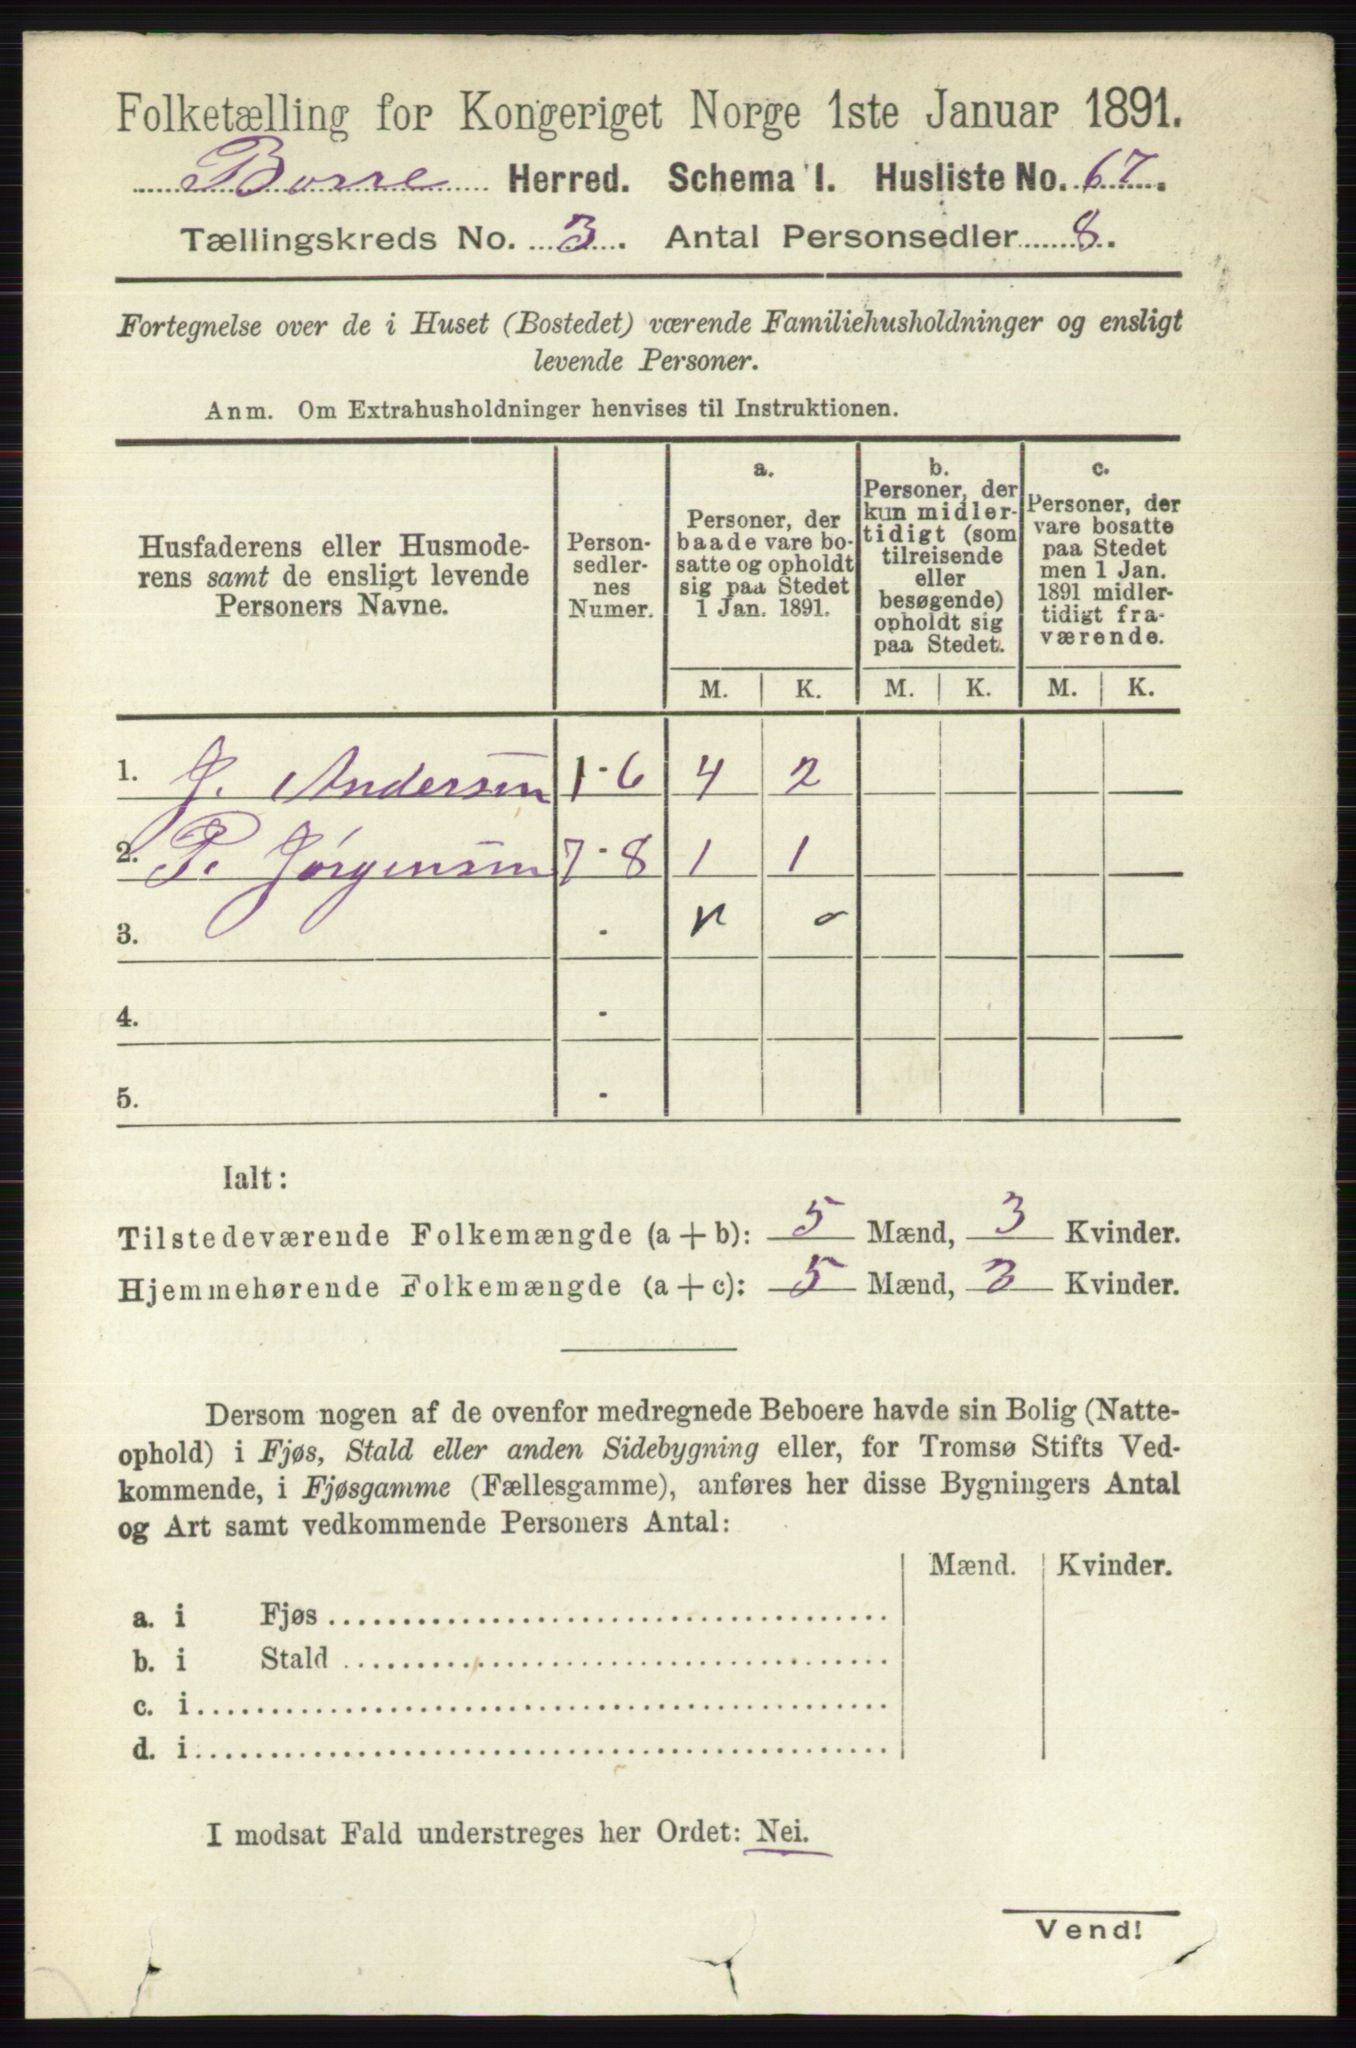 Folketælling for Kongeriget Norge 1ste Januar 1891.
Borre Herred. Schema I. Husliste No. 67.
Tællingskreds No. 3. Antal Personsedler 8.
Fortegnelse over de i Huset (Bostedet) værende Familiehusholdninger og ensligt
levende Personer.
Anm. Om Extrahusholdninger henvises til Instruktionen.
Husfaderens eller Husmode-
rens samt de ensligt levende
Personers Navne.
Person-
sedler-
nes
Numer.
a.
Personer, der
baade vare bo-
satte og opholdt
sig paa Stedet
1 Jan. 1891.
b.
Personer, der
kun midler-
tidigt (som
tilreisende
eller
besøgende)
opholdt sig
paa Stedet.
c.
Personer, der
vare bosatte
paa Stedet
men 1 Jan.
1891 midler-
tidigt fra-
værende.
M. K. M. K. M. K.
1. J. Andersen 1-6 4 2
2. P. Jørgensen 7-8 1 1
3. -
4. -
5. -
Ialt:
Tilstedeværende Folkemængde (a + b): 5 Mænd, 3 Kvinder.
Hjemmehørende Folkemængde (a + c): 5 Mænd, 3 Kvinder.
Dersom nogen af de ovenfor medregnede Beboere havde sin Bolig (Natte-
ophold) i Fjøs, Stald eller anden Sidebygning eller, for Tromsø Stifts Ved-
kommende, i Fjøsgamme (Fællesgamme), anføres her disse Bygningers Antal
og Art samt vedkommende Personers Antal:
Mænd. Kvinder.
a. i Fjøs
b. i Stald
c. i
d. i
I modsat Fald understreges her Ordet: Nei.
Vend!